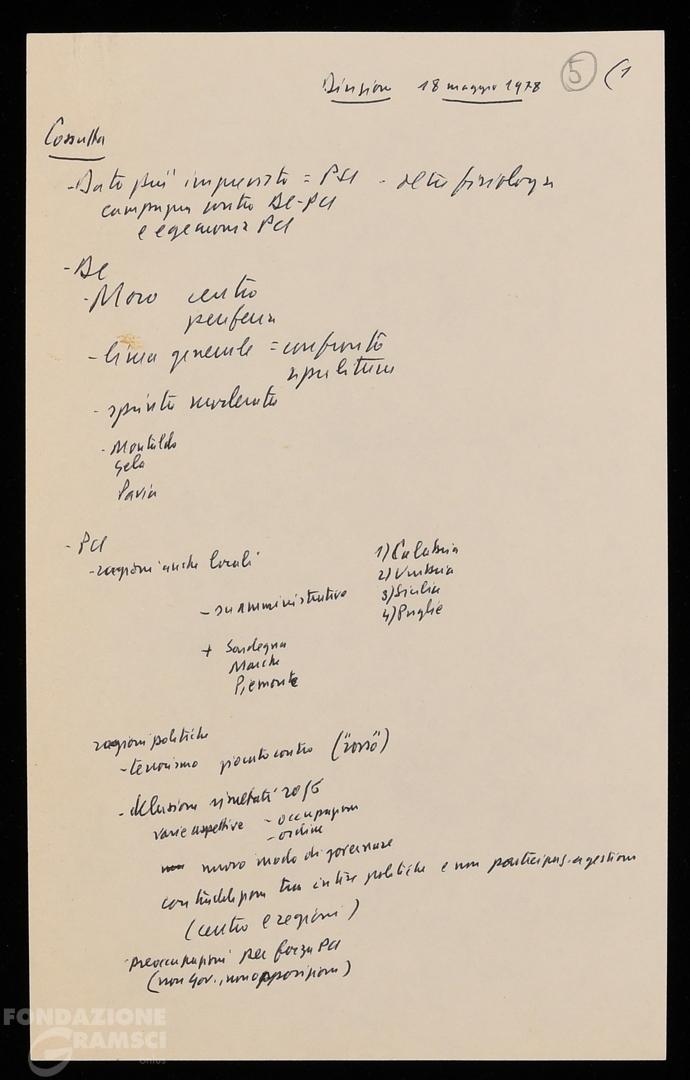 Direzione 18 maggio 1978 5 (1
Cossutta
- Dato più imprevisto = PSI - oltre fisiologia
campagna contro DC-PCI
e egemonia PCI
- DC
- Moro centro
periferia
- linea generale = confronto
- spinta moderata
- Montaldo
Gela
Pavia
- PCI
- ragioni anche locali
1) Calabria
2) Umbria
3) Sicilia
4) Puglie
- su amministrative
+ Sardegna
Marche
Piemonte
ragioni politiche
- terrorismo giocato contro ("rosso")
- delusione risultati 20/6
varie aspettive - occupazione
- ordine
nuovo modo di governare
contraddizioni tra intese politiche e non partecipaz. a gestione
(centro e regioni)
- preoccupazioni per forza PCI
(non gov., non opposizione)
FONDAZIONE
GRAMSCI
onlus